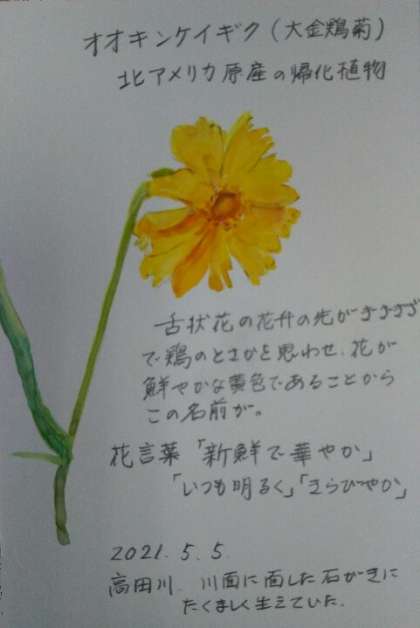 オオキンケイギク(大金鶏菊)
北アメリカ原産の帰化植物
舌状花の花弁の先がギザギザ
で鶏のとさかを思わせ、花が
鮮やかな黄色であることから
この名前が。
花言葉「新鮮で華やか」
「いつも明るく」「きらびやか」
2021.5.5.
高田川、川面に面した石がきに
たくましく生えていた。